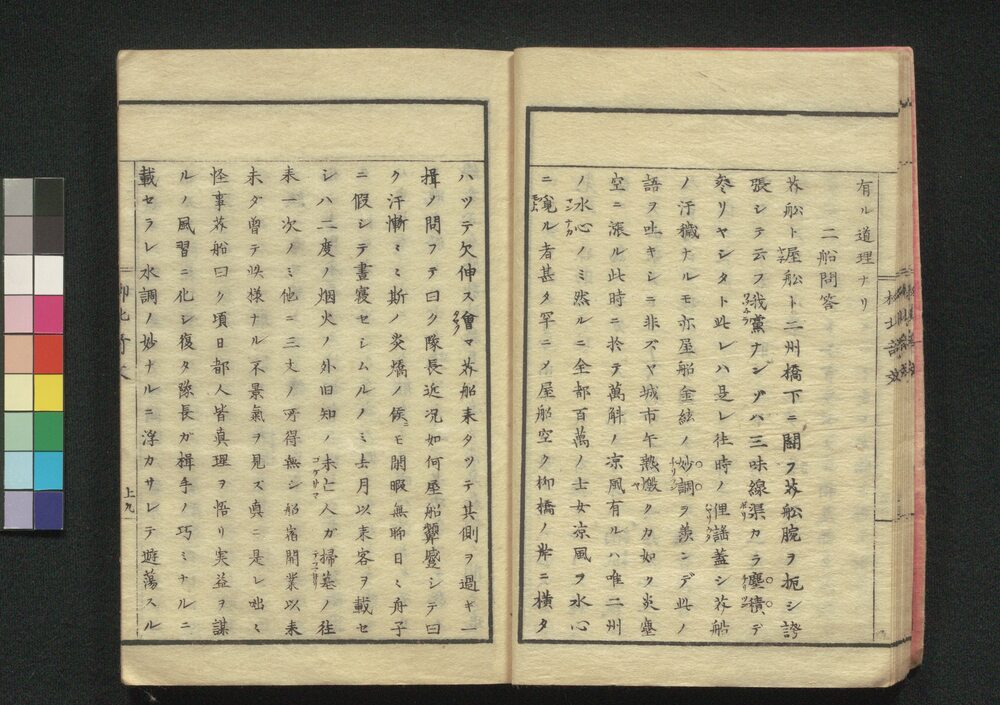 有ル道理ナリ
二船問答
芥船ト屋船ト二州橋下ニ鬪フ芥舩腕ヲ扼シ誇
張シテ云フ我黨ナシゾハ三味線渠カラ塵積、デ
參リヤシタト此レハ是レ往時ノ俚謡蓋シ芥船
ノ汙穢ナルモ亦屋船金絃ノ妙調ヲ羨ンデ此ノ
語ヲ吐キシニ非ズヤ城市午熱燬クカ如ク炎塵
空ニ漲ル此時ニ於テ萬斛ノ凉風有ルハ唯二州
ノ水心ノミ然ルニ全都百萬ノ士女凉風ヲ水心
ニ覓ル者甚タ罕ニメ屋船空ク柳橋ノ岸ニ横タ
ハツテ欠伸ス會マ芥船来タツテ其側ヲ過ギ一
揖ノ問フテ曰ク隊長近况如何屋船顰蹙シテ曰
ク汗慚々々斯ノ炎熇ノ候モ閑暇無聊日々舟子
ニ假シテ晝寝セシムルノミ去月以来客ヲ載セ
シハ二度ノ烟火ノ外旧知ノ未亡人ガ掃墓ノ往
来一次ノミ他ニ三丈ノ所得無シ船宿開業以来
未ダ曽テ㫡様ナル不景氣ヲ見ズ真ニ是レ咄々
怪事芥船曰ク項日都人皆真理ヲ悟リ実益ヲ謀
ルノ風習ニ化シ復タ隊長ガ楫手ノ巧ミナルニ
載セラレ水調ノ妙ナルニ浮カサレテ遊蕩スル
上九